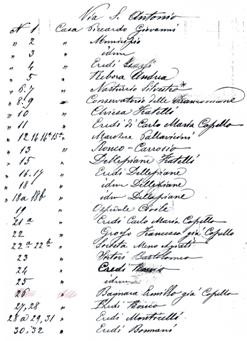 Via S. Antonio
N° 1 Casa Piccardo Giovanni
" 2 " Municipio
" 3 " idem
" 4 " Eredi
" 5 " Rebora Andrea
" 6.7 " Nasturio Silvestro
" 8.9 " Conservatorio delle
" 10 " Chiesa Fratelli
" 11 " Eredi di Carlo Maria Capello
" 12.14.16 " Marchese Pallavicini
" 13 " Bosco-Carosio
" 15 " Dellepiane Fratelli
" 16.17 " Eredi Dellepiane
" 18 " idem Dellepiane
18a 18b " idem Dellepiane
19 " Ospedale Civile
21a " Eredi Carlo Maria Capello
22 " Grosso Francesco già Capello
22a 22b "
23 " Bartolomeo
24 " Eredi
25 " idem
26 " Bagnara già Capello
27, 28 " Eredi
28a 29, 31 " Eredi Monticelli
30, 32 " Eredi Romani